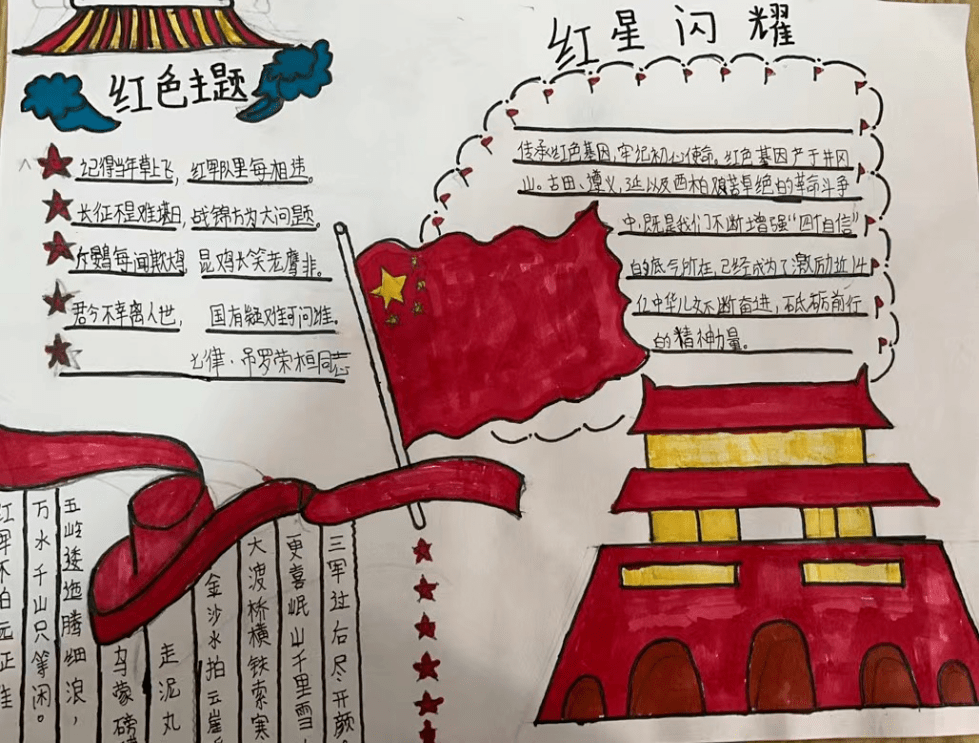 红色主题
记得当年草上飞，红军队里每相违。
长征不是难堪日，战锦方为大问题。
每闻欺 昆鸡长笑老鹰非。
君今不幸离人世， 国有疑难可问谁.
七律·吊罗荣桓同志
红星闪耀
传承红色基因,牢记初心使命。红色基因产于井冈
山。古田、遵义,延以及西柏艰苦卓绝的革命斗争
中,既是我们不断增强“四个自信”
的底气所在,已经成为了激励近14
亿中华儿女不断奋进，砥砺前行
的精神力量。
红军不怕远征难
万水千山只等闲。
五岭逶迤腾细浪，
乌蒙磅
走泥丸
金沙水拍云崖
大波桥横铁索寒
更喜岷山千里雪，
三军过后尽开颜。